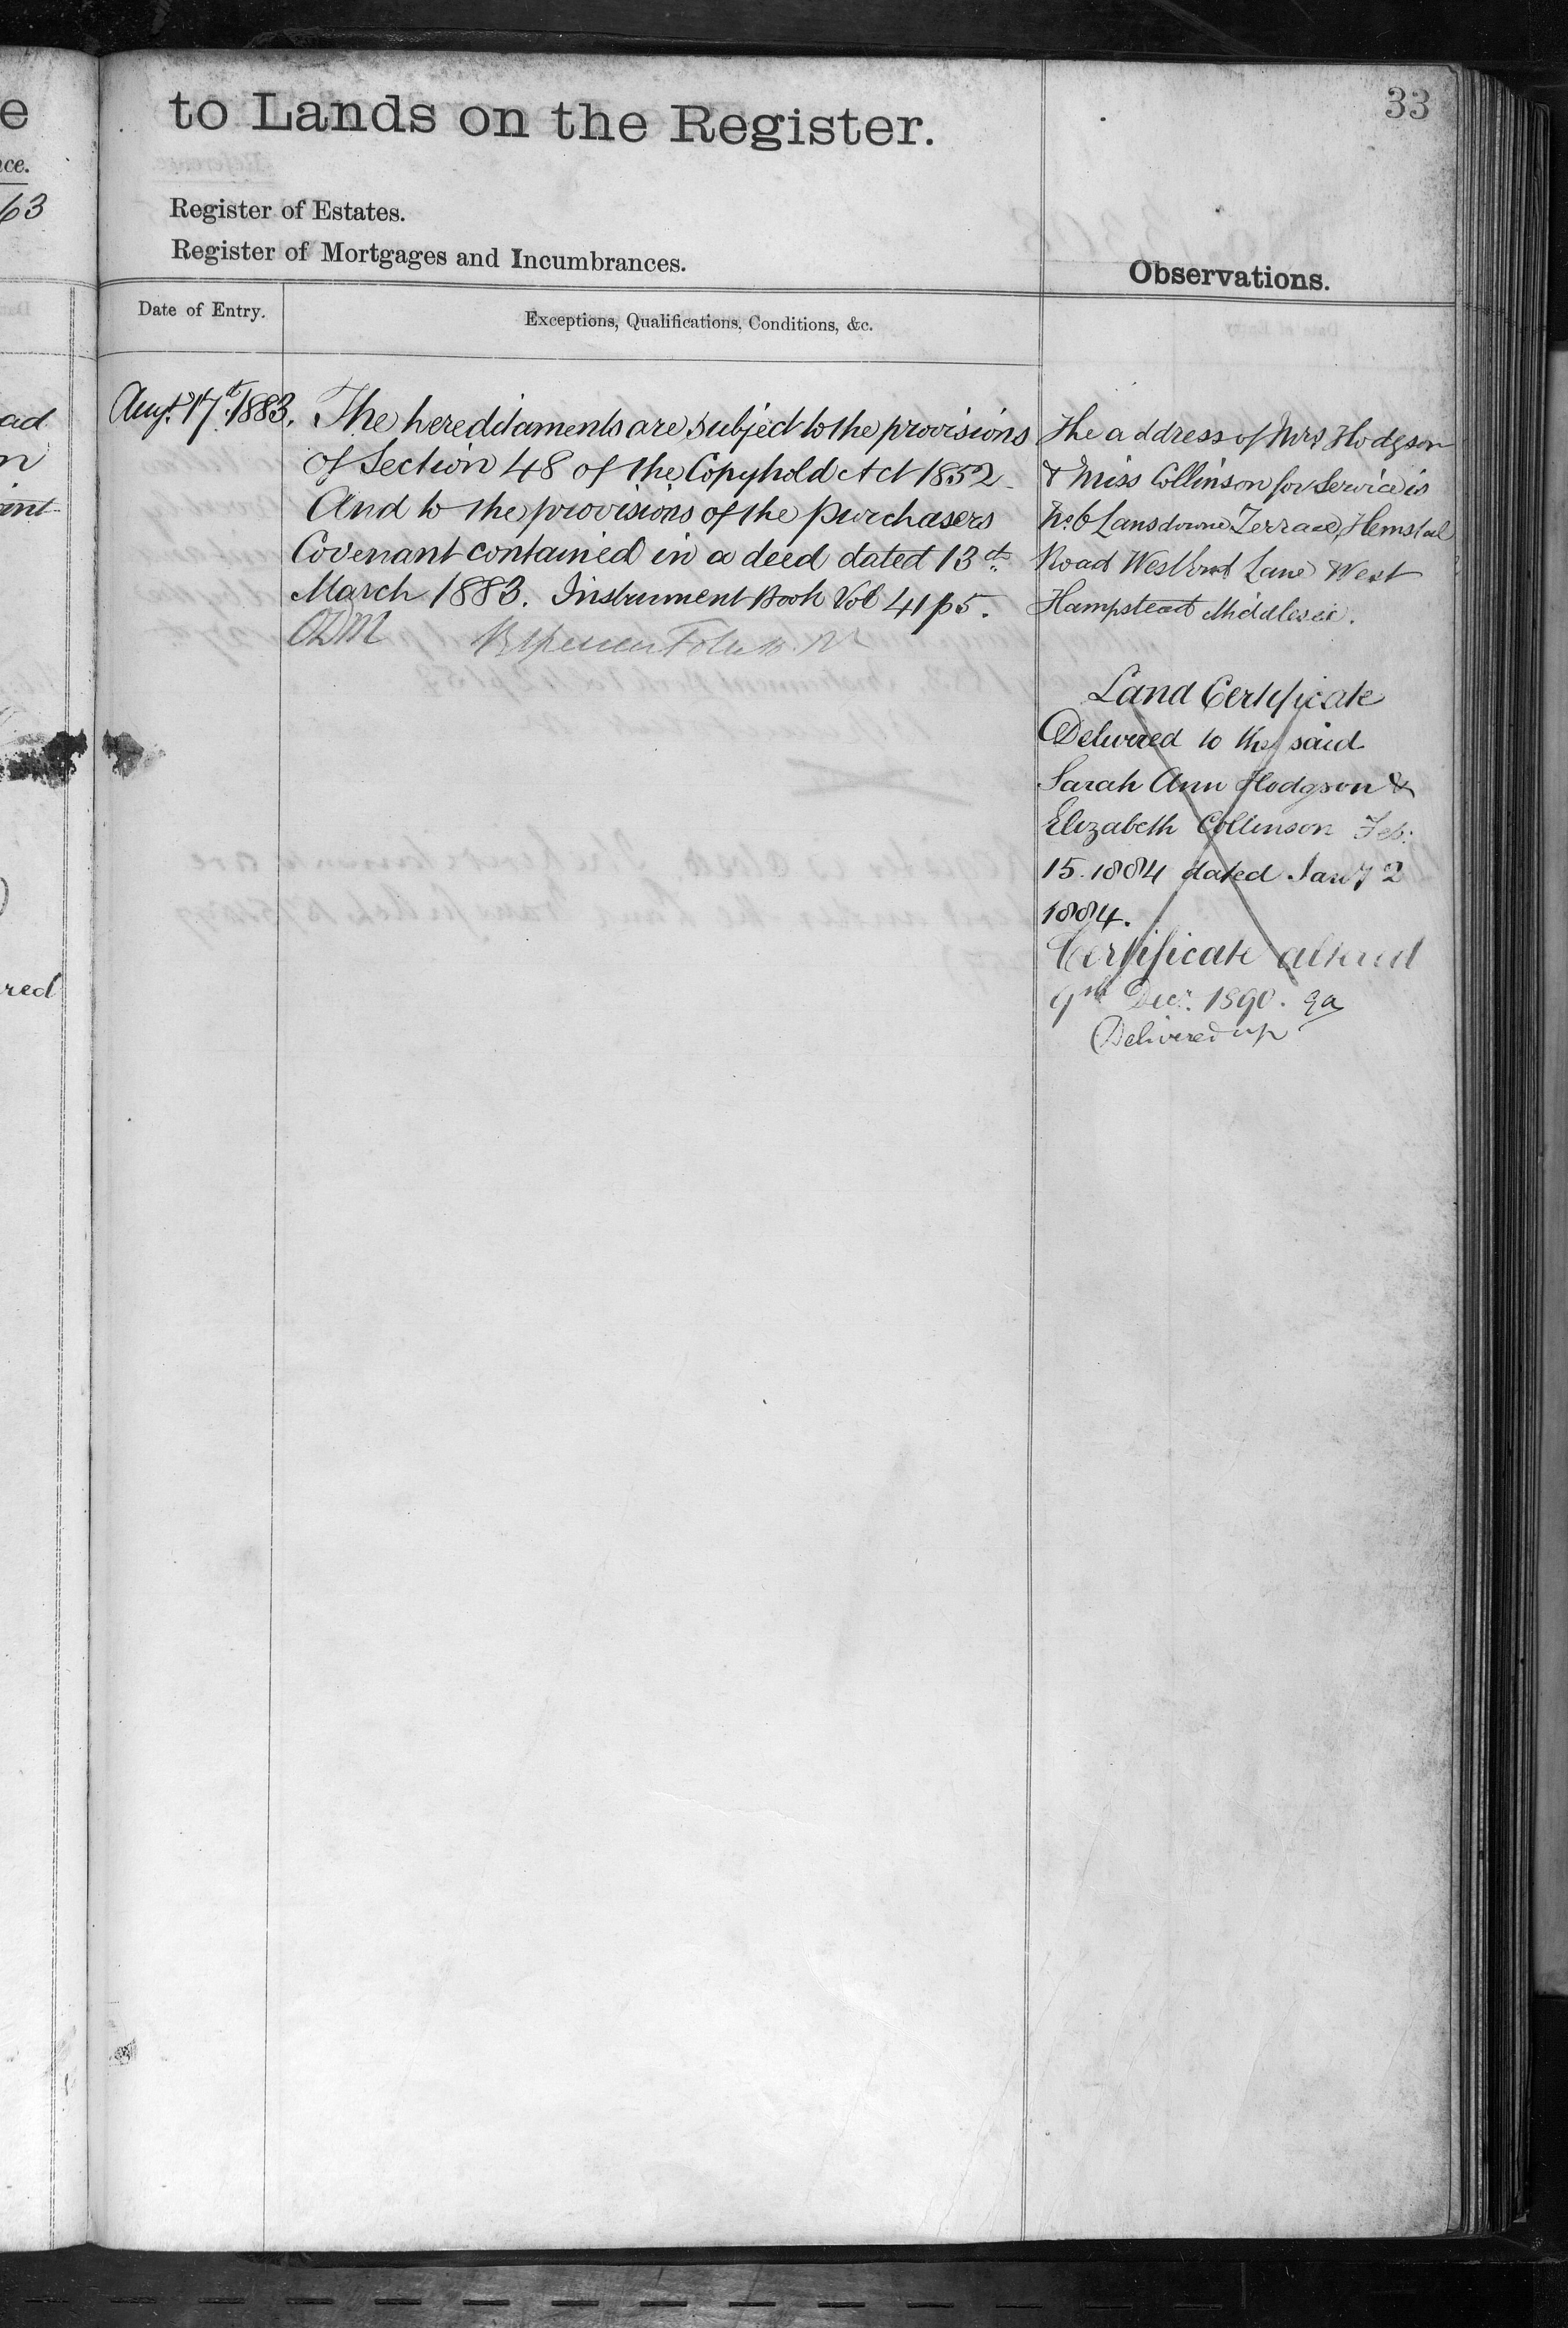 33
to Lands on the Register.
Register of Estates.
Register of Mortgages and Incumbrances.
Observations.
Date of Entry.
Exceptions, Qualifications, Conditions, &c.
e
ce.
63
ad
n
red
Augt. 17th 1883. The hereditaments are subject to the provisions
of Section 48 of the Copyhold Act 1852
And to the provisions of the purchasers
Covenant contained in a deed dated 13th
March 1883. Instrument Book Vol 41 p 5.
The address of Mrs Hodgson
& Miss Collinson for Service is
No. 6 Lansdowne Terrace, Hemstal
Road West End Lane West
Hampstead Middlesex.
Land Certificate
Delivered to the said
Sarah Ann Hodgson &
Elizabeth Collinson Feb:
15. 1884 dated Jany 2
1884.
Certificate altered
9th Decr. 1890.
Delivered up